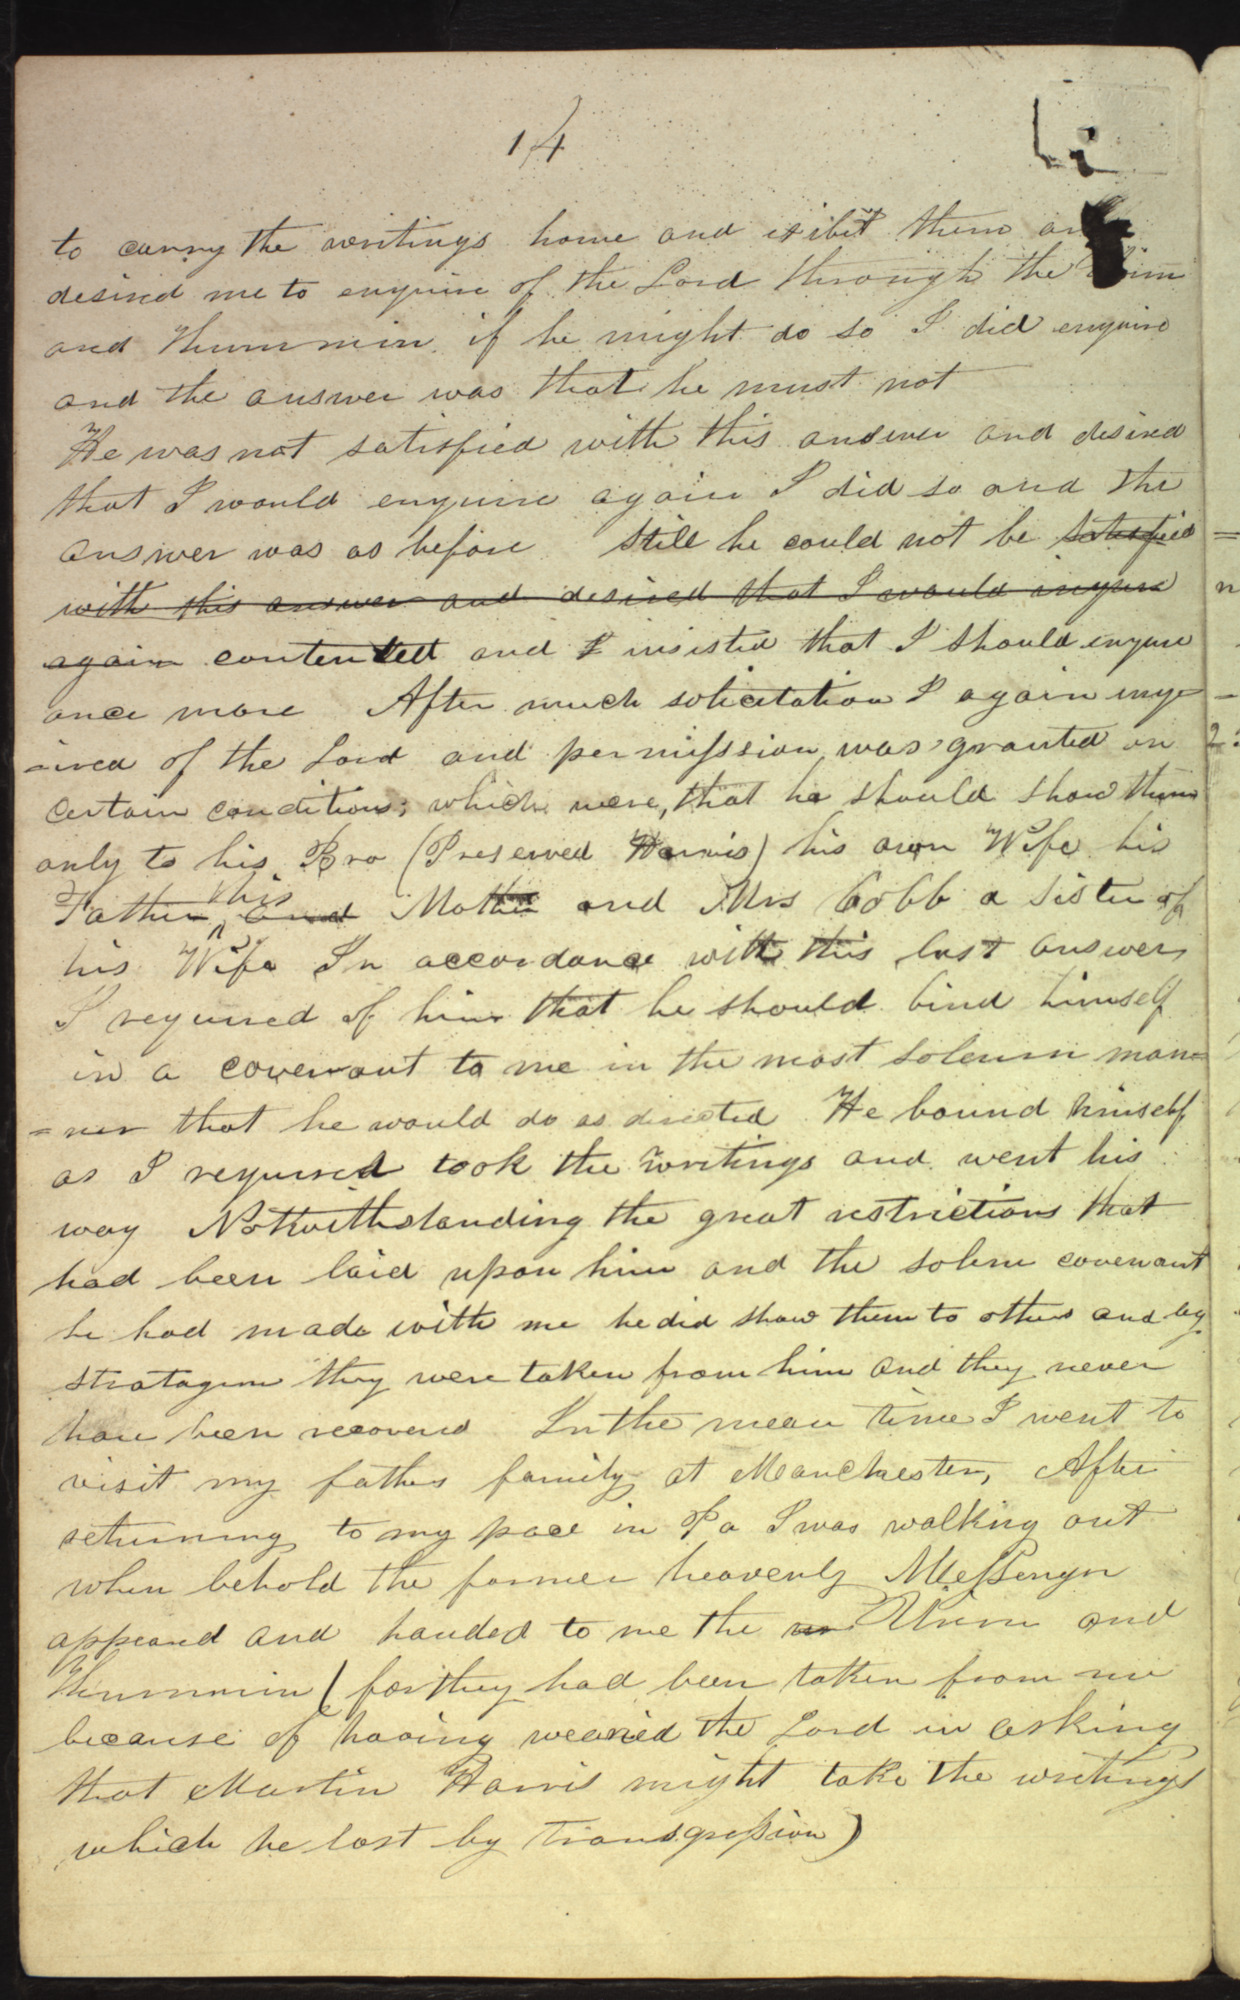 14
to carry the writings home and exibit them an
desired me to enquire of the Lord through the Urim
and Thummim if he might do so I did enquire
and the answer was that he must not
He was not satisfied with this answer and desired
that I would enquire again I did so and the
answer was as before Still he could not be satisfied
with this answer and desired that I would inquire
again contented and insisted that I should enquire
once more After much solicitation I again inqu-
-ired of the Lord and permission was granted on
certain conditions; which were, that he should show them
only to his Bro (Preserved Harris) his own Wife his
Father, his and Mother and Mrs Cobb a sister of
his Wife In accordance with this last answer
I required of him that he should bind himself
in a covenant to me in the most solemn man=
=ner that he would do as directed He bound himself
as I required took the writings and went his
way Notwithstanding the great restrictions that
had been laid upon him and the solem covenant
he had made with me he did show them to others and by
stratagem they were taken from him and they never
have been recovered In the mean time I went to
visit my fathers family at Manchester, After
returning to my pace in Pa I was walking out
when behold the former heavenly Messenger
appeared and handed to me the Urim and
Thummim (for they had been taken from me
because of having wearied the Lord in asking
that Martin Harris might take the writings
which he lost by transgression)